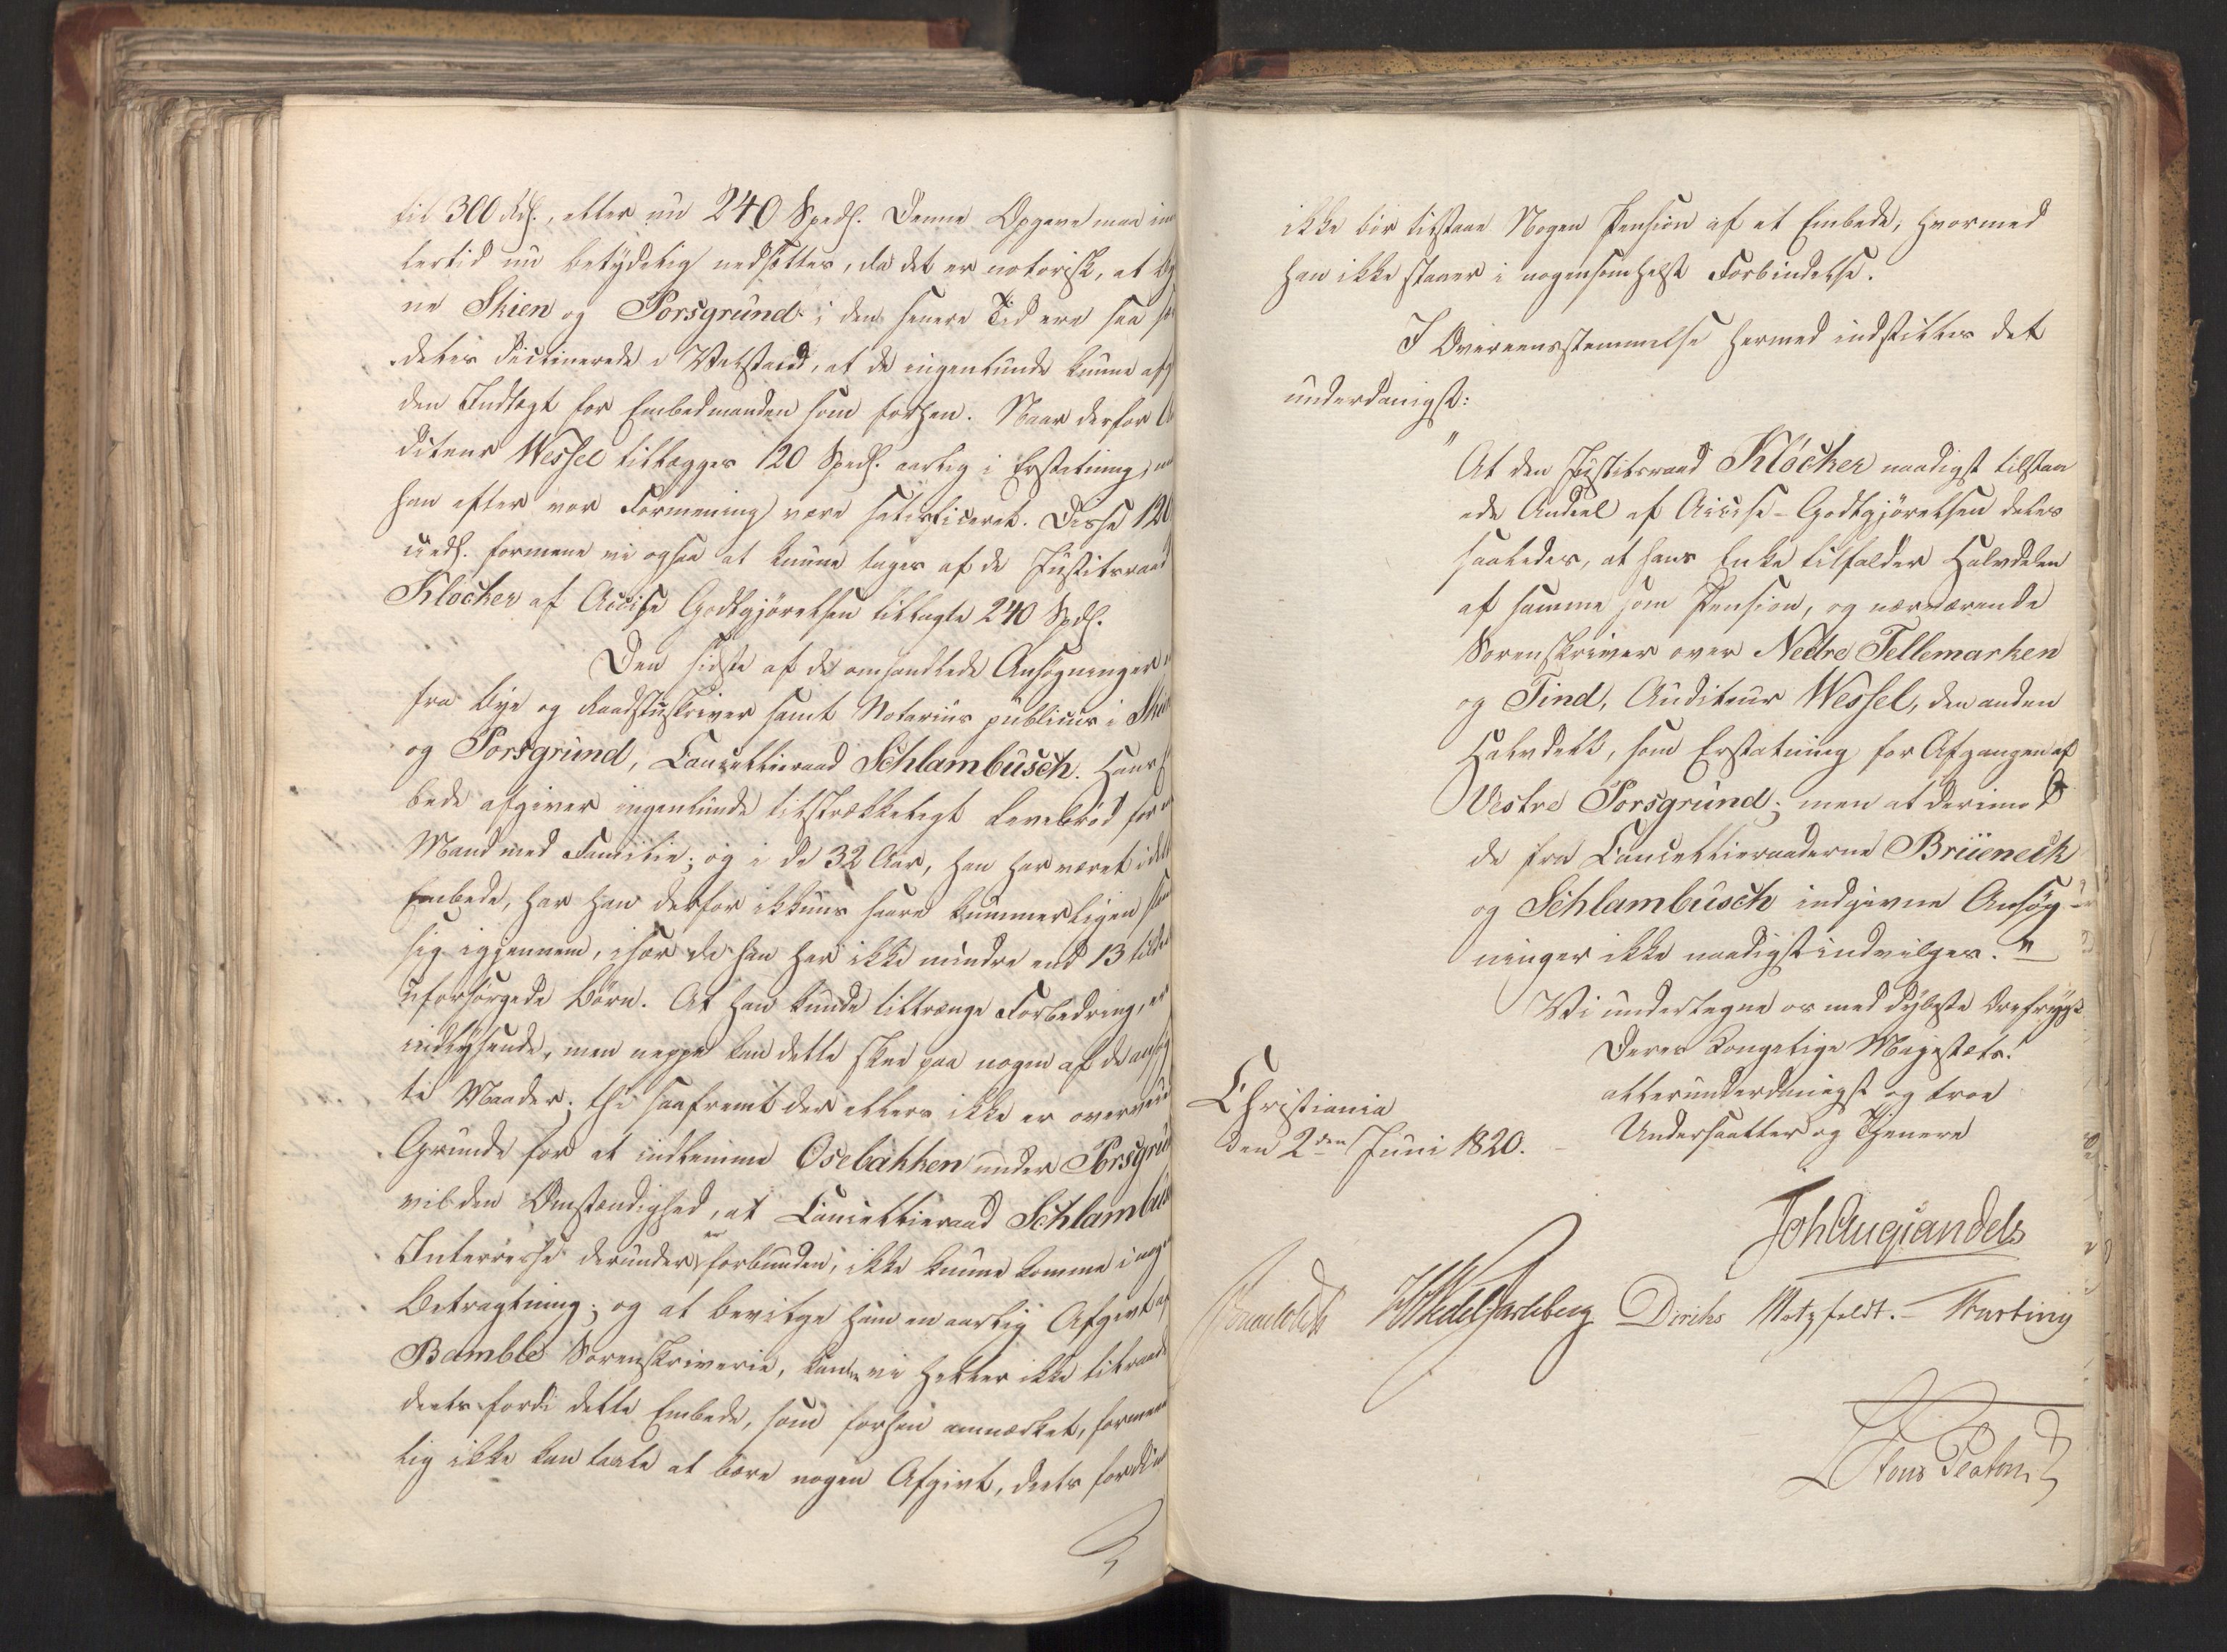 til 300 Rd., eller nu 240 Spd. Denne Opgave maa im
lertid nu betydelig nedsættes, da det er notorisk, at By
ne Skien og Porsgrund i den senere Tid ere saa
deles declinerede i Velstand, at de ingenlunde kunne afg
den Indtægt for Embedmanden som forhen. Naar derfor
diteur Wessel tillægges 120 Spd. aarlig i Erstatning,
han efter vor Formening være satisficeret. Disse 120
formene vi ogsaa at kunne tages af de Justitsraad
Klöcker af Accise Godtgjörelsen tillagte 240 Spd.
Den sidste af de omhandlede Ansögninger
fra Bye og Raadstuskriver samt Notarius publicus i Skie
og Porsgrund, Cancellieraad Schlambusch. Hans
bede afgiver ingenlunde tilstrækkeligt Levebröd for
Mand med Familie; og i de 32 Aar, han har været i
Embede, har han derfor ikkuns saare kummerligen
sig igjennem, især da han har ikke mindre end 13
uforsörgede Börn. At han kunde tiltrænge Forbedring, er
indlysende, men neppe kan dette skee paa nogen af de ansög
te Maader; thi saafremt der ellers ikke er overveie
Grunde for at indlemme Osebakken under Porsgru
vil den Omstændighed, at Cancellieraad Schlambus
Interesse derunder er forbunden, ikke kunne komme i nog
Betragtning; og at bevilge ham en aarlig Afgivt af
Bamble Sorenskriverie, kunne vi heller ikke tilraade
deels fordi dette Embede, som forhen anmærket, formeen
lig ikke kan taale at bære nogen Afgivt, deels fordi
ikke bör tilstaae Nogen Pension af et Embede, hvormed
han ikke staaer i nogensomhelst Forbindelse.
I Overeensstemmelse hermed indstilles det
underdanigst:
"At den Justitsraad Klöcker naadigst tilstaa
ede Andeel af Accise-Godtgjörelsen deles
saaledes, at hans Enke tilfalder Halvdelen
af samme som Pension, og nærværende
Sorenskriver over Nedre Tellemarken
og Tind, Auditeur Wessel, den anden
Halvdeel, som Erstatning for Afgangen af
Vestre Porsgrund; men at derimod
de fra Cancellieraaderne Brüeneck
og Schlambusch indgivne Ansög-
ninger ikke naadigst indvilges."
Vi undertegne os med dybeste Ærefrygt
Deres Kongelige Majestæts!
allerunderdanigst og troe
Christiania
Undersaatter og Tjenere
den 2den Juni 1820.
Joh Aug Sandels
HWedel Jarlsberg Diriks Motzfeldt. -